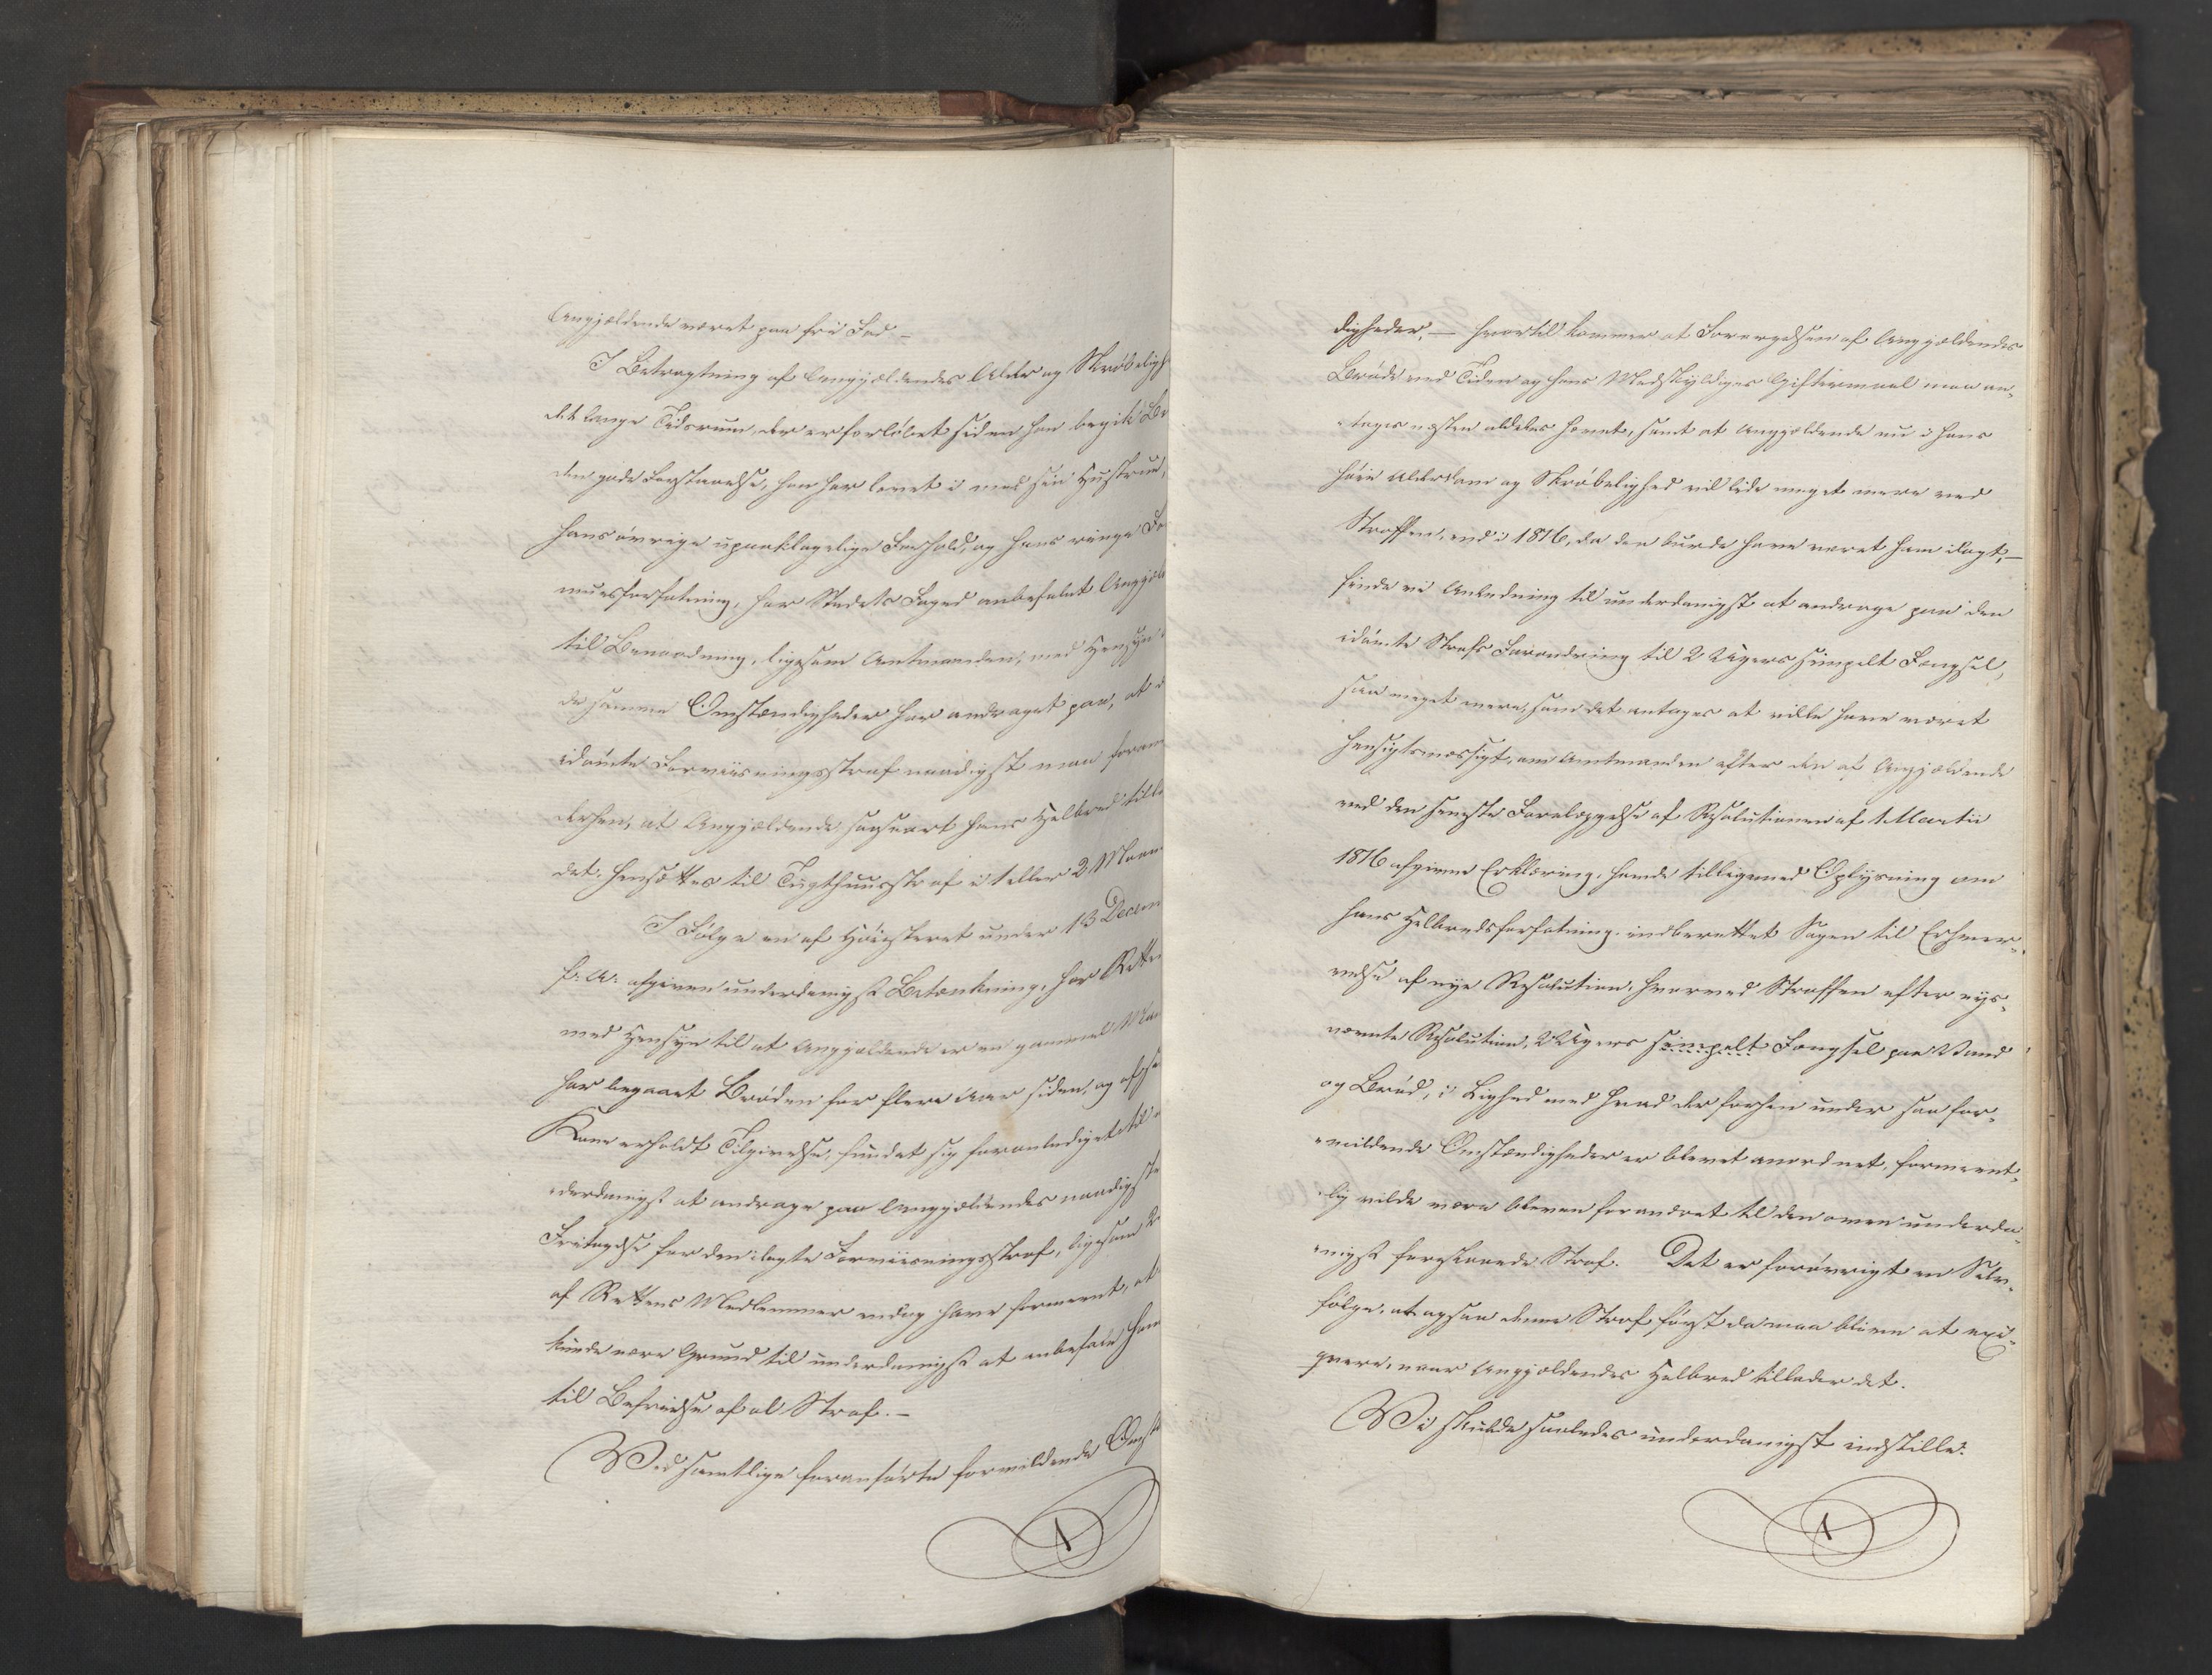 Angjældende været paa fri Fod. —
I Betragtning af Angjældendes Alder og Skrøbeligh
det lange Tidsrum, der er forløbet siden han begik Br
den gode Forstaaelse, han har levet i med sin Hustrue,
hans øvrige upaaklagelige Forhold, og hans ringe Fo
muesforfatning, har Stedets Foged anbefalet Angjæl
til Benaadning, ligesom Amtmanden, med Hensyn
de samme Omstændigheder har andraget paa, at d
idømte Forviisningsstraf naadigst maa foran
derhen, at Angjældende, saasnart hans Helbred tilla
det, hensættes til Tugthuusstraf i 1 eller 2 Maan
I Følge en af Høiesteret under 13 Decem
f: A: afgiven underdanigst Betænkning, har Rette
med Hensyn til at Angjældende er en gammel Man
har begaaet Brøden for flere Aar siden, og af sin
Kone erholdt Tilgivelse, fundet sig foranlediget til u
derdanigst at andrage paa Angjældendes naadigste
Fritagelse for den ilagte Forviisningsstraf, ligesom
af Rettens Medlemmer endog have formeent, at
kunde være Grund til underdanigst at anbefale ham
til Befrielse af al Straf. —
Ved samtlige foranførte formildende Omstæ
digheder, — hvortil kommer at Forargelsen af Angjældendes
Brøde ved Tiden og hans Medskyldiges Giftermaal maa an-
tages næsten aldeles hævet, samt at Angjældende nu i hans
høie Alderdom og Skrøbelighed vil lide meget mere ved
Straffen, end i 1816, da den burde have været ham ilagt, —
finde vi Anledning til underdanigst at andrage paa den
idømte Strafs Forandring til 2 Ugers simpelt Fængsel,
saa meget mere, som det antages at ville have været
hensigtsmæssigt, om Amtmanden efter den af Angjældende
ved den seneste Forelæggelse af Resolutionen af 1 Martii
1816 afgivne Erklæring, havde tilligemed Oplysning om
hans Helbredsforfatning, indberettet Sagen til Erhver-
velse af nye Resolution, hvorved Straffen efter nys-
nævnte Resolution, 2 Ugers simpelt Fængsel paa Vand
og Brød, i Lighed med hvad der forhen under saa for-
mildende Omstændigheder er blevet anordnet, formeent-
lig vilde være bleven forandret til den oven underda-
nigst foreslaaede Straf. Det er forøvrigt en Selv-
følge, at ogsaa denne Straf først da maa blive at exe-
qvere, naar Angjældendes Helbred tillader det.
Vi skulde saaledes underdanigst indstille: